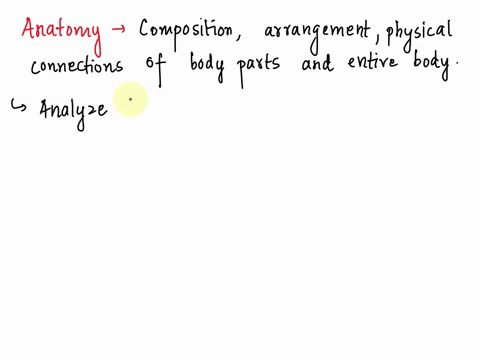 Anatomy → Composition, arrangement, physical
connections of body parts and entire body.
↳ Analyze